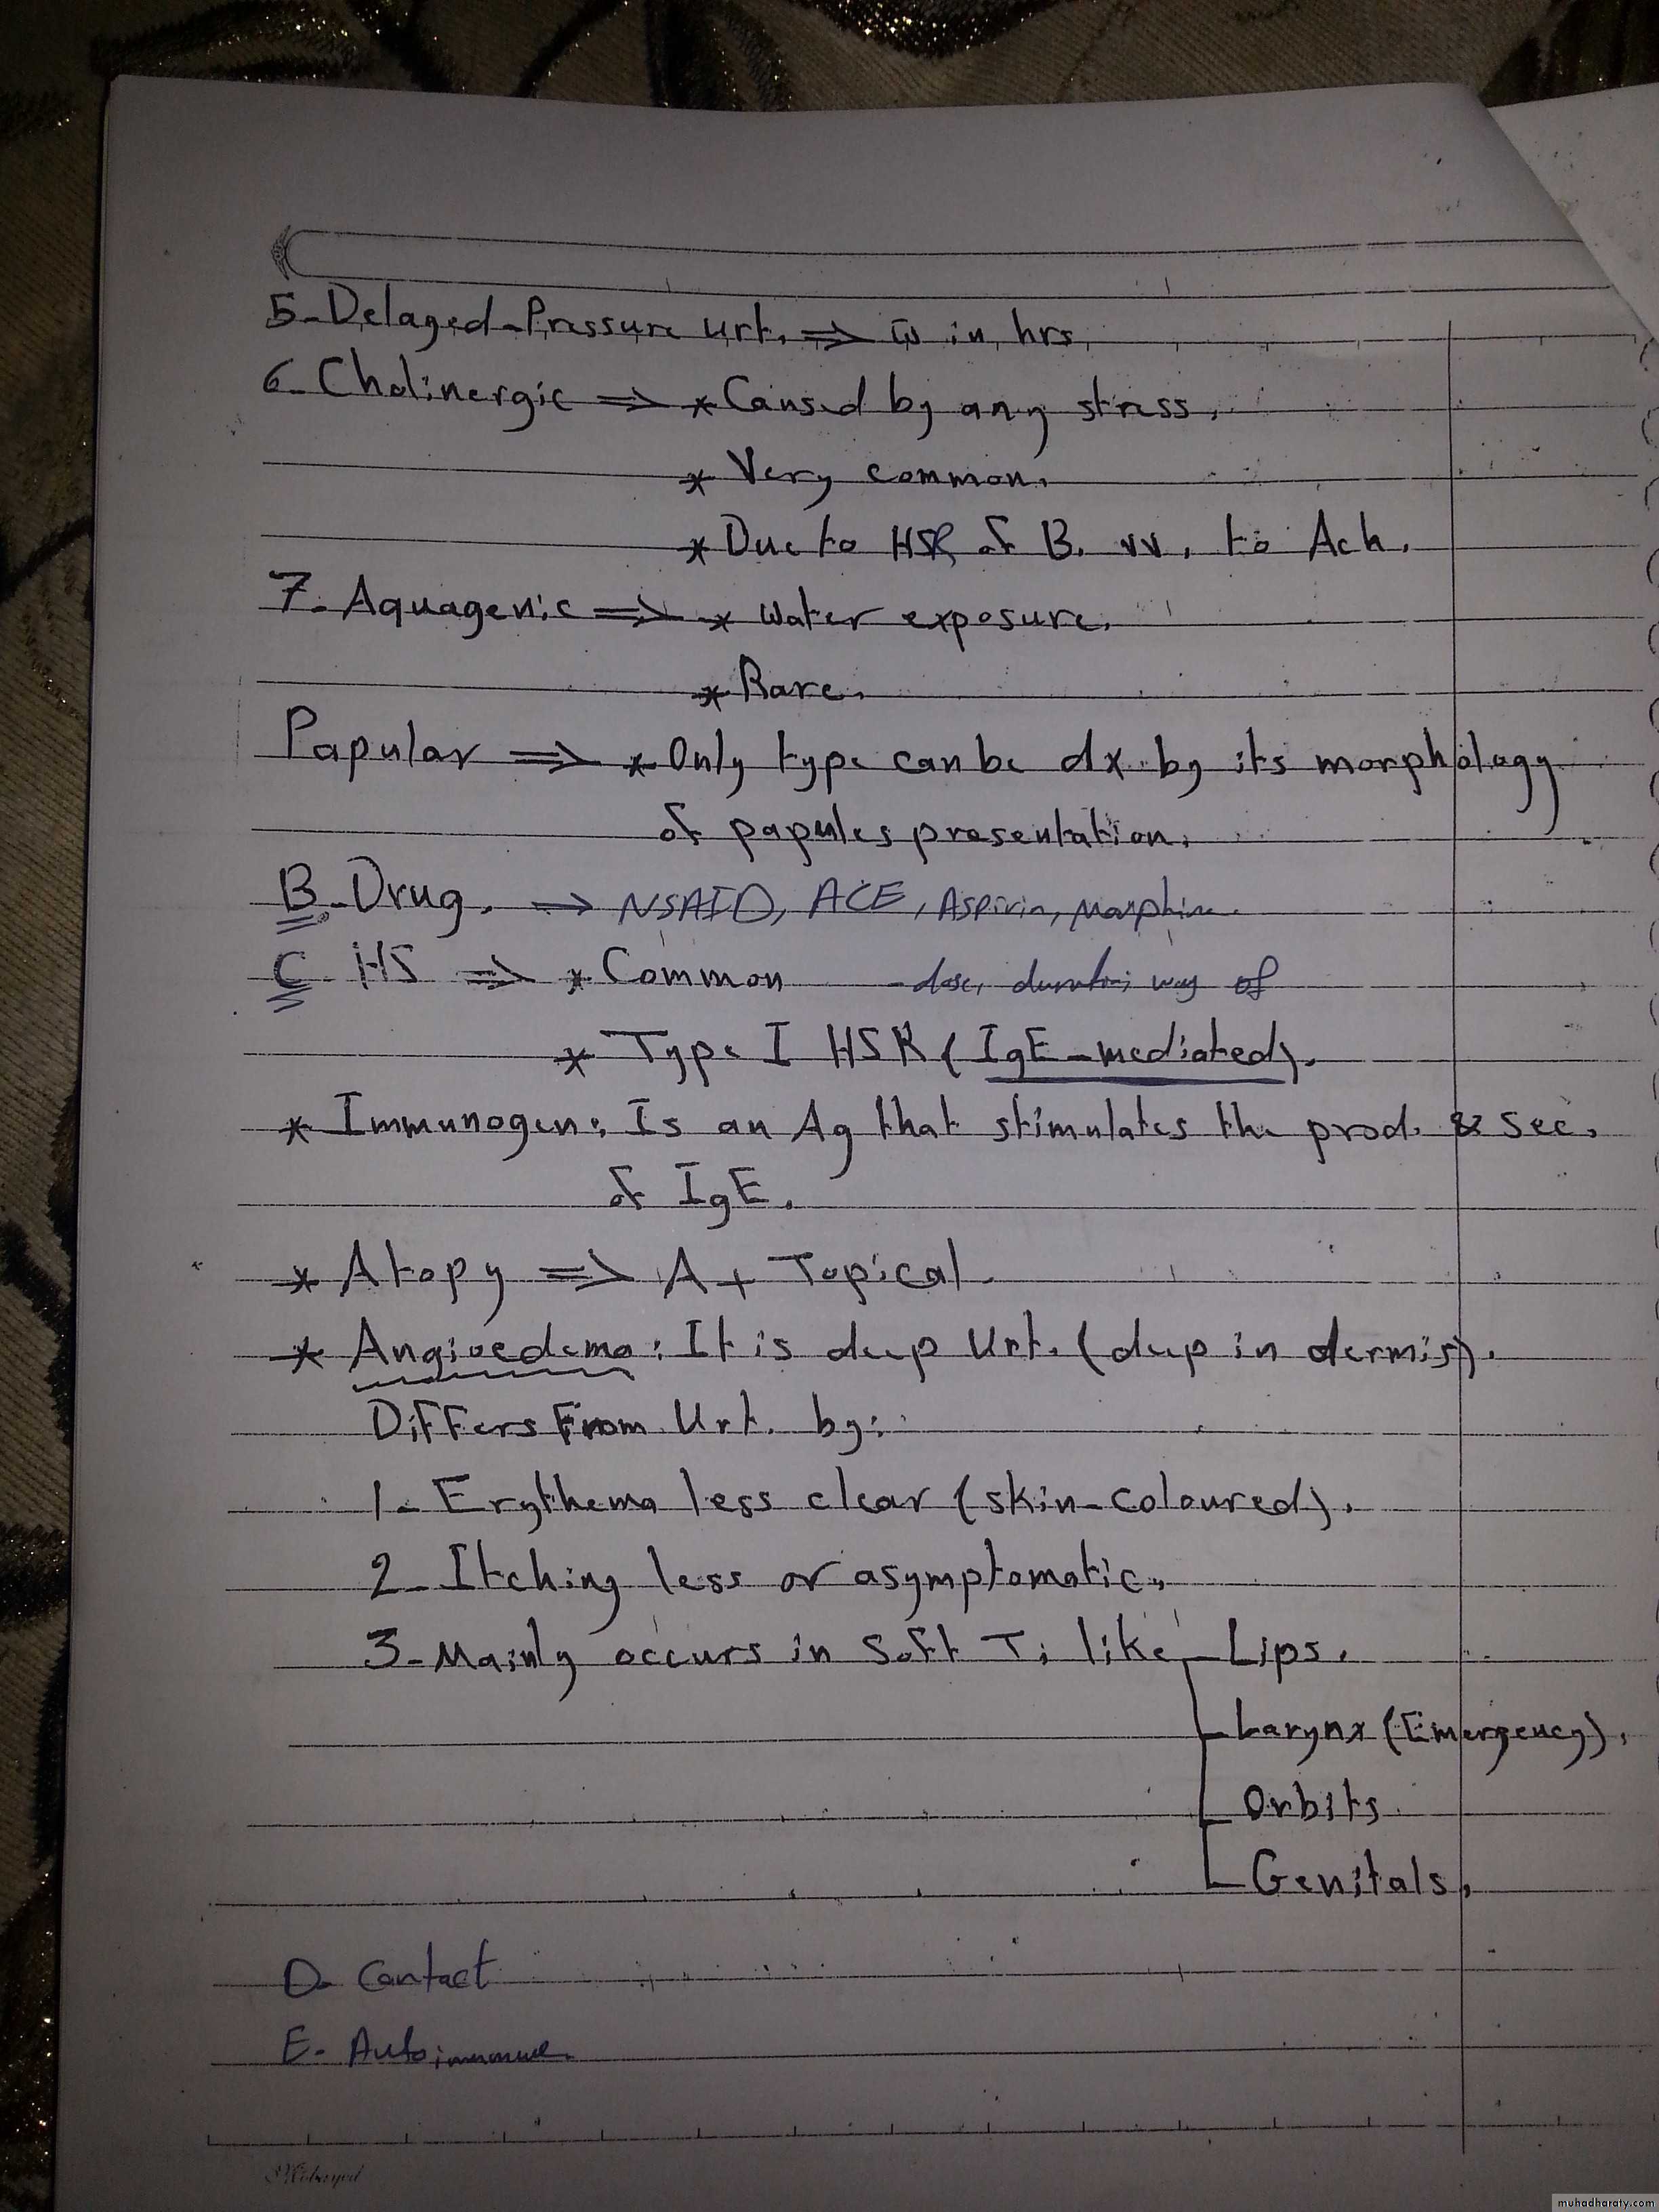 5-Delayed-Pressure urt. ⇒ w̄ in hrs
6-Cholinergic ⇒ * Caused by any stress.
* Very common.
* Due to HSR of B. vv. to Ach.
7-Aquagenic ⇒ * Water exposure.
* Rare.
Papular ⇒ * Only type can be dx by its morphology
of papules presentation.
B-Drug. → NSAID, ACE, Aspirin, Morphine.
C HS ⇒ * Common - dose, duration, way of
* Type I HSR (IgE-mediated).
* Immunogen: Is an Ag that stimulates the prod. & sec.
of IgE.
* Atopy ⇒ A + Topical
* Angioedema: It is deep Urt. (deep in dermis).
Differs From Urt. by:
1- Erythema less clear (skin-coloured).
2- Itching less or asymptomatic.
3-Mainly occurs in Soft Ti like Lips.
Larynx (Emergency).
Orbits
Genitals.
D- Contact
E- Autoimmune.
muhadharaty.com